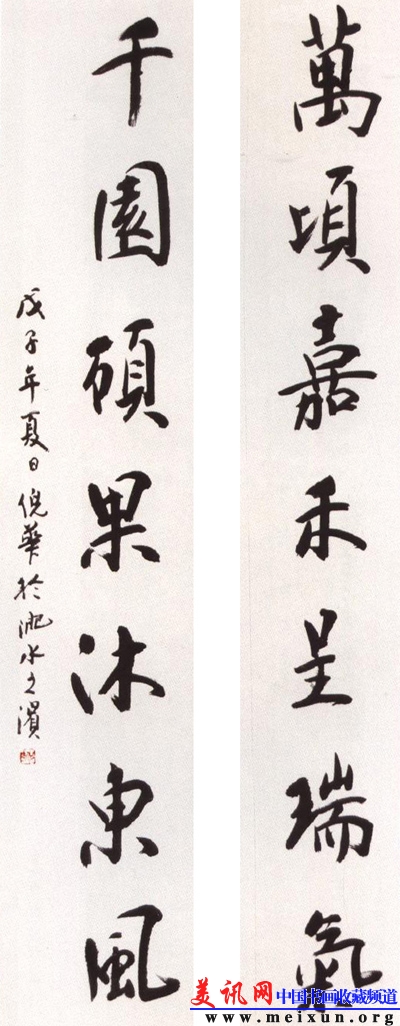 萬頃嘉禾呈瑞氣
千園碩果沐東風
戊子年夏日倪華於淝水之濱
美讯网 中国书画收藏频道
www.meixun.org